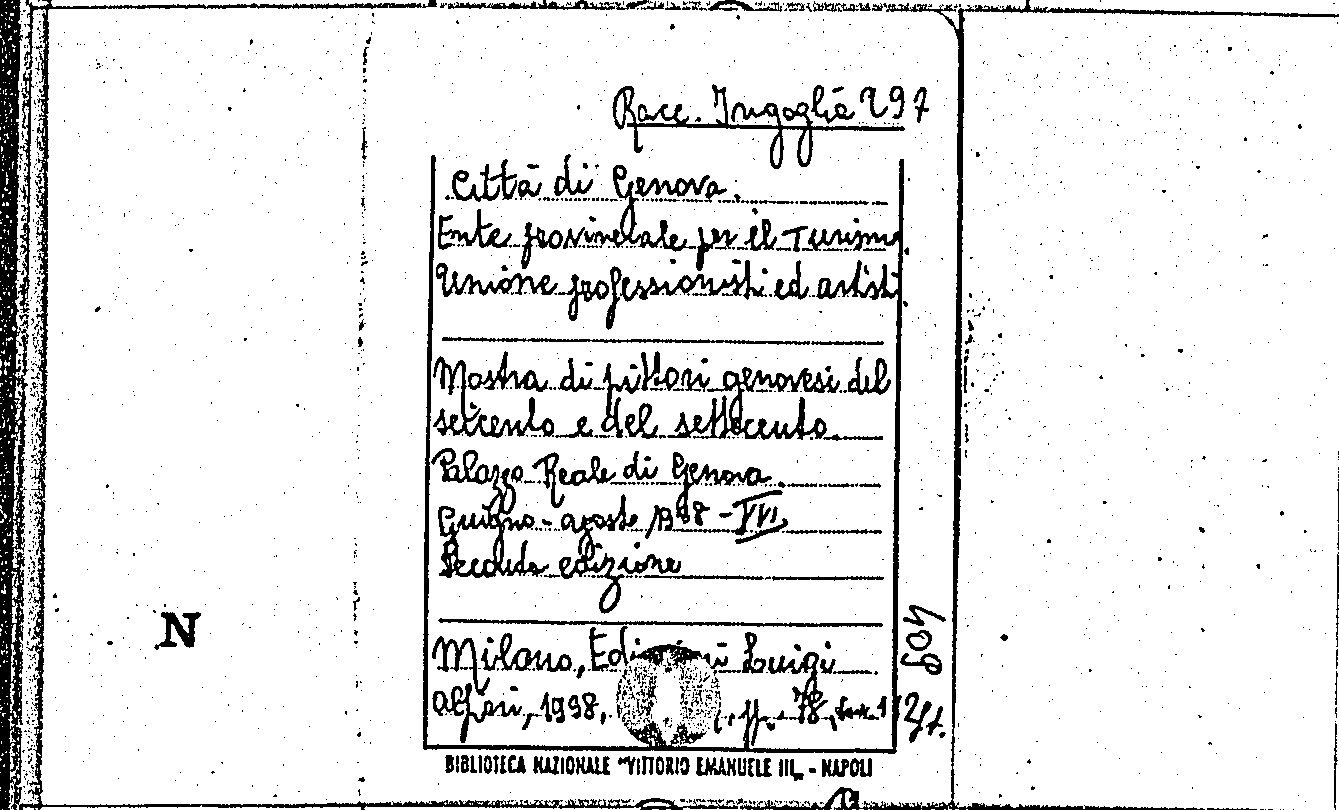 Racc. Ingoglia 297
Città di Genova.
Ente provinciale per il Turismo.
Unione professionisti ed artisti.
Mostra di pittori genovesi del
seicento e del settecento.
Palazzo Reale di Genova.
Giugno - agosto 1938 - XVI
Seconda edizione
N
409
Milano, Edizioni Luigi
Alfieri, 1938, pp. 78,
BIBLIOTECA NAZIONALE "VITTORIO EMANUELE III„ - NAPOLI